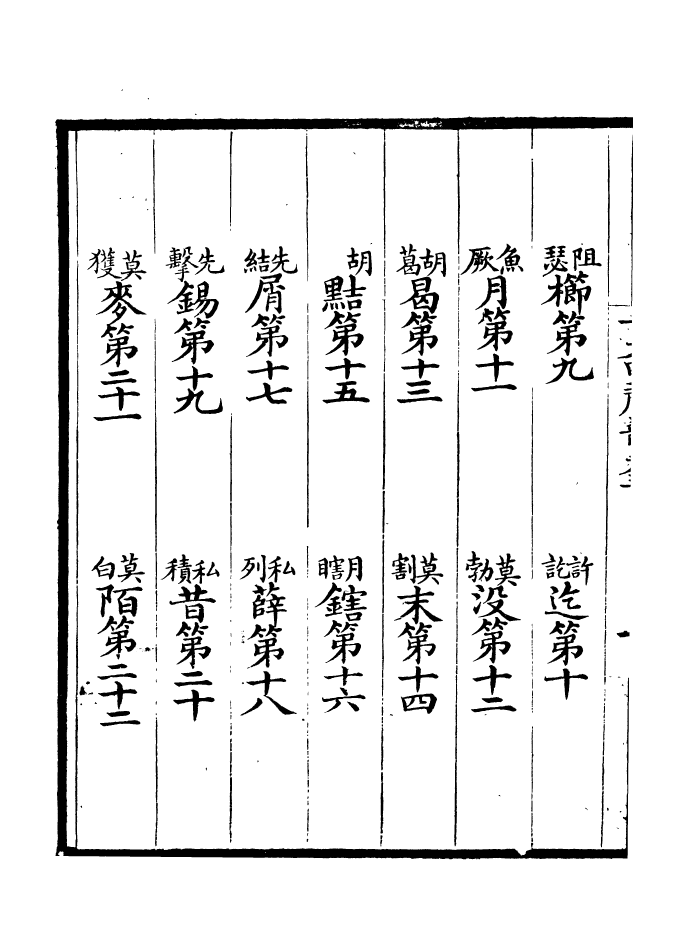 阻瑟櫛第九 許訖迄第十
魚厥月第十一 莫勃没第十二
胡葛曷第十三 莫割末第十四
胡黠第十五 月瞎鎋第十六
先結屑第十七 私列薛第十八
先擊錫第十九 私積昔第二十
莫獲麥第二十一 莫白陌第二十二